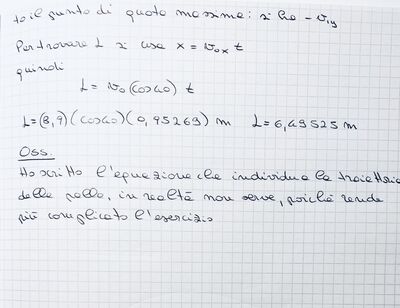 to il punto di quota massima: si ha - v₁y
Per trovare L si usa x = v₀x t
quindi
L = v₀ (cos40) t
L=(8,9)(cos40)(0,95269) m L= 6,49525 m
Oss.
Ho scritto l'equazione che individua la traiettoria
della palla, in realtà non serve, poiché rende
più complicato l'esercizio